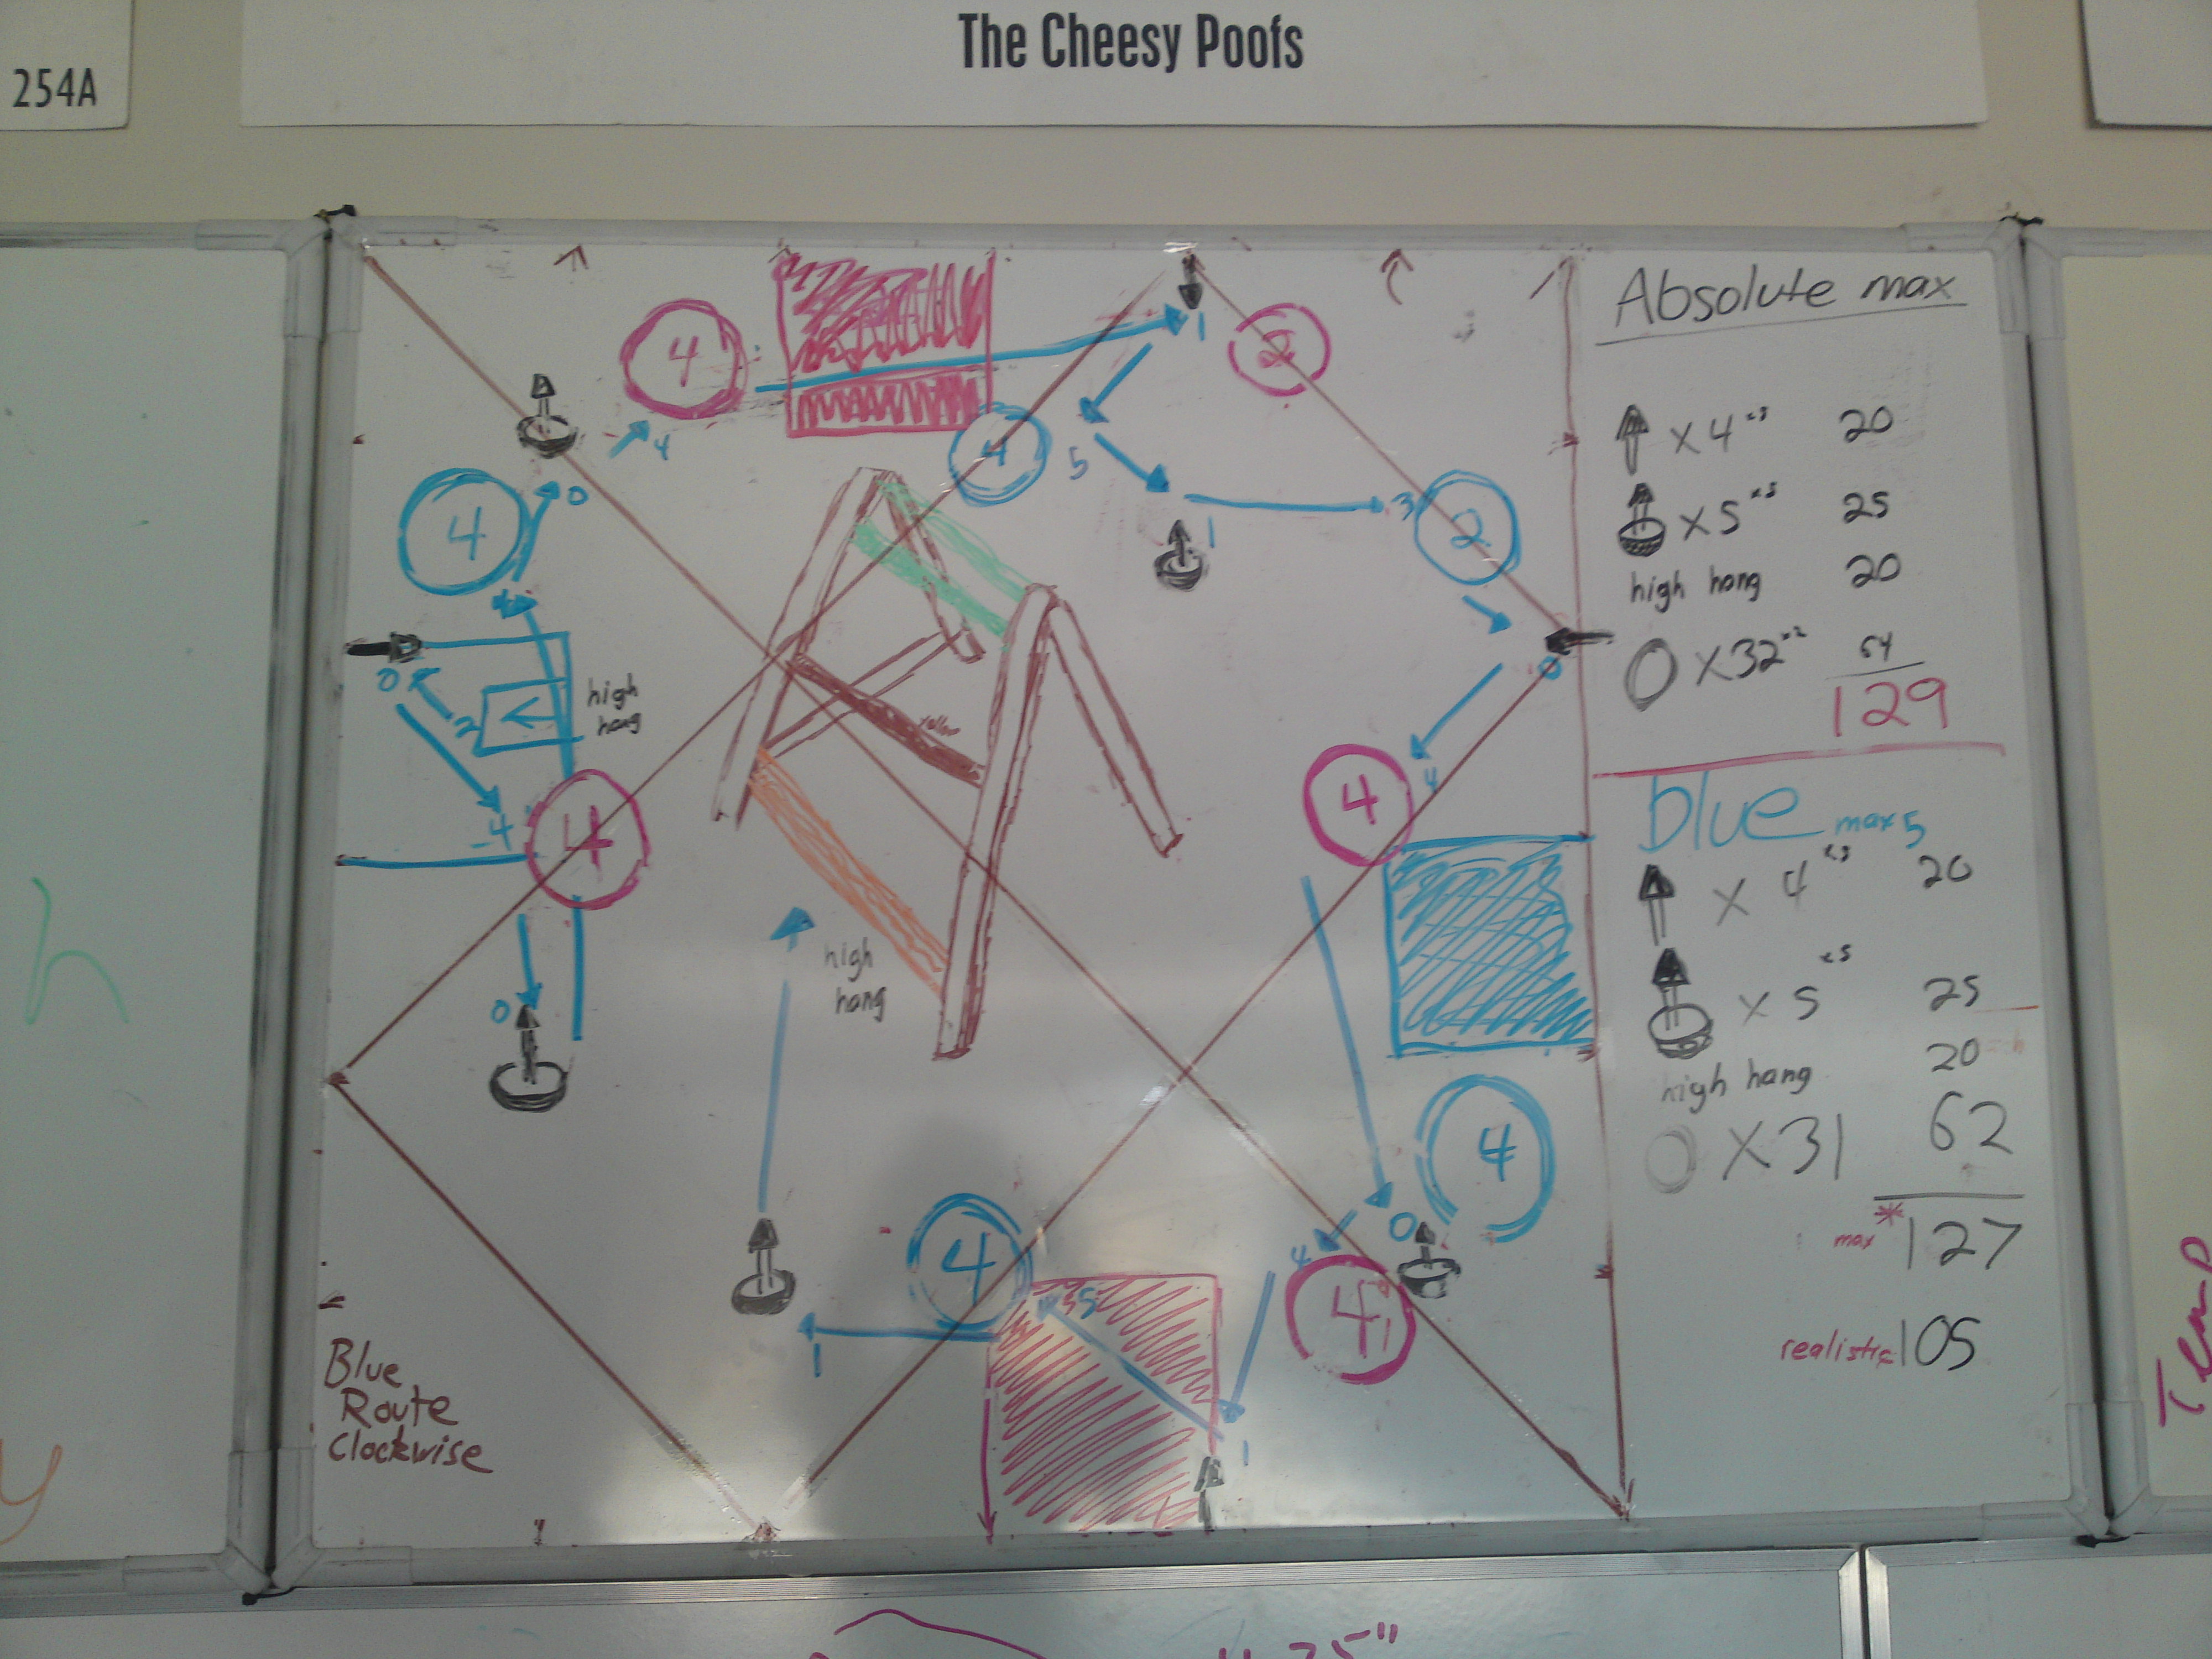 The Cheesy Poofs
254A
Absolute max
x 4 x5 20
x 5 x5 25
high hang 20
x 32 x2 64
129
blue max 5
x 4 x5 20
x 5 x5 25
high hang 20
x 31 62
max * 127
realistic 105
4
1
2
4
5
3
2
4
0
4
1
0
0
2
high
hang
-4
4
4
4
0
high
hang
4
0
4
4
5
1
1
Blue
Route
Clockwise
h
y